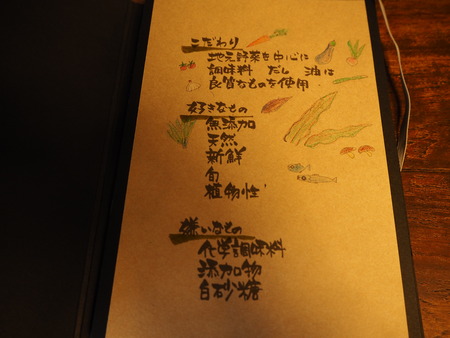 こだわり
地元野菜を中心に
調味料 だし 油は
良質なものを使用
好きなもの
無添加
天然
新鮮
旬
植物性
嫌いなもの
化学調味料
添加物
白砂糖